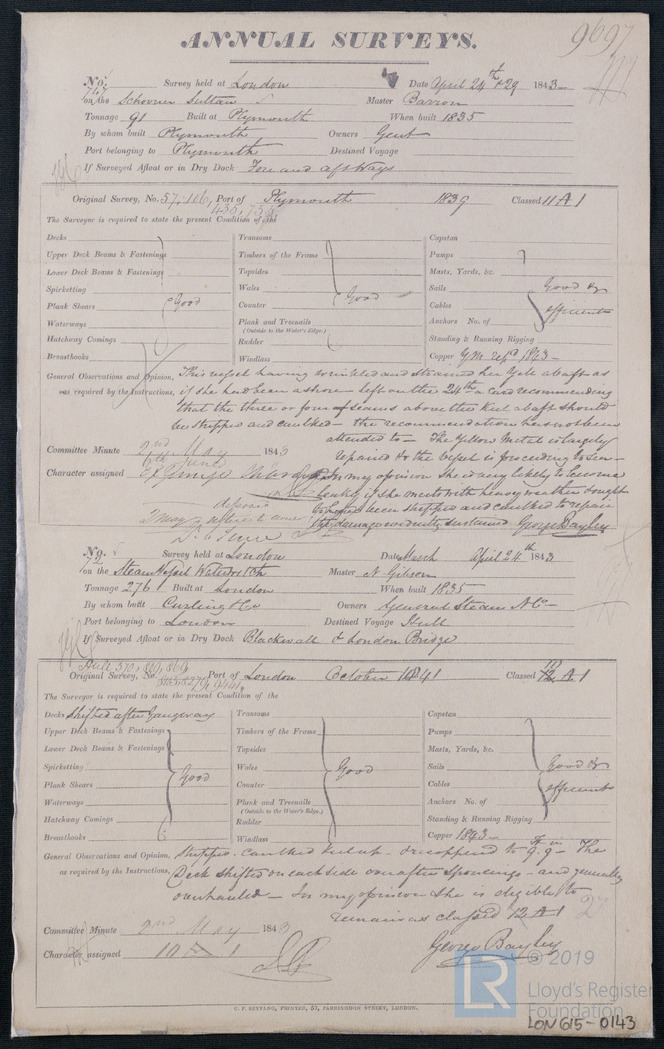 ANNUAL SURVEYS.
9697
No. 767 Survey held at London Date April 24th & 29 1843
on the Schooner Sultan Master Barron
Tonnage 91 Built at Plymouth When built 1835
By whom built Plymouth Owners Gent
Port belonging to Plymouth Destined Voyage
If Surveyed Afloat or in Dry Dock Fore and aft Ways
Original Survey, No. 57.106, Port of Plymouth 1839 Classed 11 A 1
The Surveyor is required to state the present Condition of the
Decks Transoms Capstan
Upper Deck Beams & Fastenings Timbers of the Frame Pumps
Lower Deck Beams & Fastenings Topsides Masts, Yards, &c.
Spirketting Wales Sails Good &
Plank Shears Good Counter Good Cables efficient
Waterways Plank and Treenails Anchors No. of
(Outside to the Water's Edge.)
Hatchway Comings Rudder Standing & Running Rigging
Breasthooks Windlass Copper Y.M. repd 1843
General Observations and Opinion, This vessel having wrinkled and strained her Yellow abaft as
was required by the Instructions, if she had been ashore left on the 24th a card recommending
that the three or four seams above the keel abaft should
be stripped and caulked – the recommendation has not been
attended to – The Yellow Metal is largely
Committee Minute 2nd May 1843 repaired & the vessel is proceeding to Sea –
6th June
Character assigned In my opinion she is very likely to become
leaky if she meets with heavy weather & ought
to have been stripped and caulked to repair
the damage evidently sustained George Bayley
No. 72 Survey held at London Date March April 24th 1843
on the Steam Vessel Waterwitch Master N Gibson
Tonnage 276 Built at London When built 1835
By whom built Curling & Co Owners General Steam N Co
Port belonging to London Destined Voyage Hull
If Surveyed Afloat or in Dry Dock Blackwall & London Bridge
Original Survey, No. Port of London October 1841 Classed 12 A 1
10
The Surveyor is required to state the present Condition of the
Decks Shifted after Gangway Transoms Capstan
Upper Deck Beams & Fastenings Timbers of the Frame Pumps
Lower Deck Beams & Fastenings Topsides Masts, Yards, &c.
Spirketting Wales Sails Good &
Plank Shears Good Counter Good Cables efficient
Waterways Plank and Treenails Anchors No. of
(Outside to the Water's Edge.)
Hatchway Comings Rudder Standing & Running Rigging
Breasthooks Windlass Copper 1843
General Observations and Opinion, Stripped – caulked keel up – & recoppered to 9.9 – The
as required by the Instructions, Deck shifted on each side on after sponcings – and generally
overhauled – In my opinion she is eligible to
remain as classed 12 A 1
27
Committee Minute 2nd May 1843
Character assigned 10 A 1 George Bayley
C. F. SEYFANG, PRINTER, 57, FARRINGDON STREET, LONDON.
© 2019
LR
Lloyd's Register
Foundation
LON615-0143